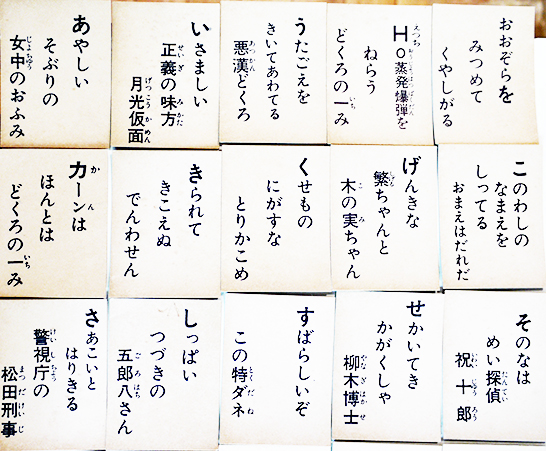 あやしい
そぶりの
女中のおふみ
いさましい
正義の味方
月光仮面
うたごえを
きいてあわてる
悪漢どくろ
HO蒸発爆弾を
ねらう
どくろの一み
おおぞらを
みつめて
くやしがる
カーンは
ほんとは
どくろの一み
きられて
きこえぬ
でんわせん
くせもの
にがすな
とりかこめ
げんきな
繁ちゃんと
木の実ちゃん
このわしの
なまえを
しってる
おまえはだれだ
さあこいと
はりきる
警視庁の
松田刑事
しっぱい
つづきの
五郎八さん
すばらしいぞ
この特ダネ
せかいてき
かがくしゃ
柳木博士
そのなは
めい探偵
祝十郎